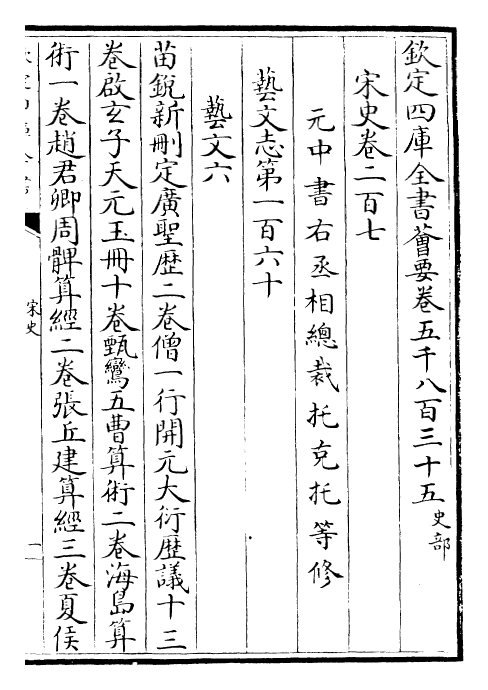 欽定四庫全書薈要卷五千八百三十五史部
宋史卷二百七
元中書右丞相總裁托克托等修
藝文志第一百六十
藝文六
苗銳新刪定廣聖歴二卷僧一行開元大衍歴議十三
卷啟玄子天元玉冊十卷甄鸞五曹算術二卷海島算
術一卷趙君卿周髀算經二卷張丘建算經三卷夏侯
宋史